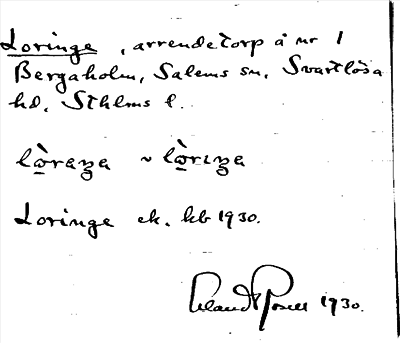 Loringe, arrendetorp å nr 1
Bergaholm, Salems sn, Svartlösa
hd, Sthlms l.
lò̠raŋa ~ lò̠rıŋa
Loringe ek. kb 1930.
1930.